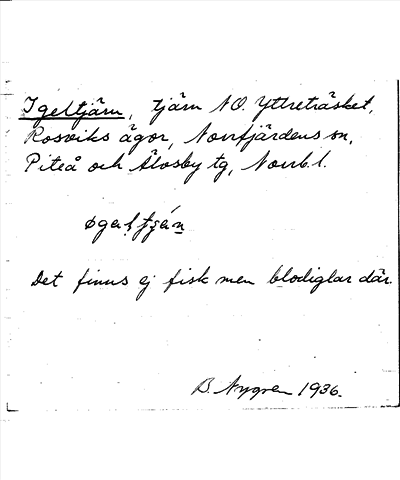 Igeltjärn, tjärn NO. Yttreträsket,
Rosviks ägor, Norrfjärdens sn,
Piteå och Älvsby tg, Norrb. l.
øgalt̨ja̦n
Det finns ej fisk men blodiglar där.
B. Nygren 1936.